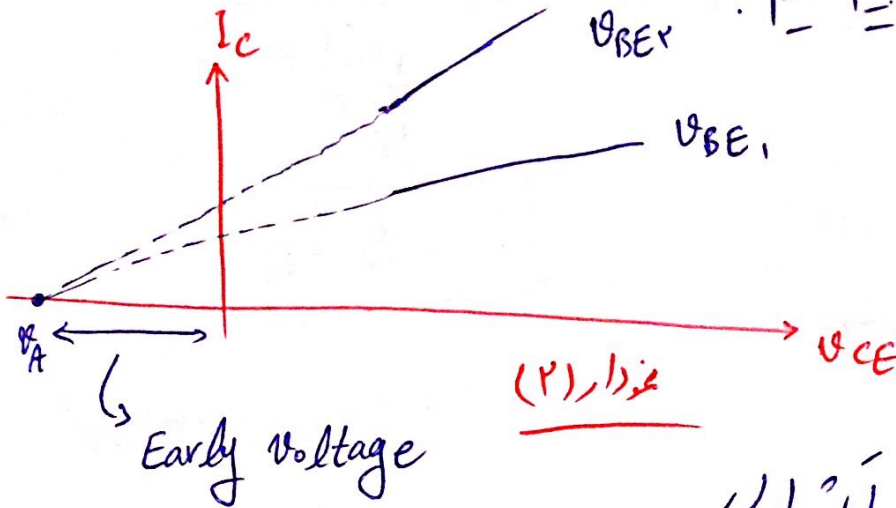 I_C
V_BE۲
V_BE۱
V_A
V_CE
نمودار (۲)
Early Voltage